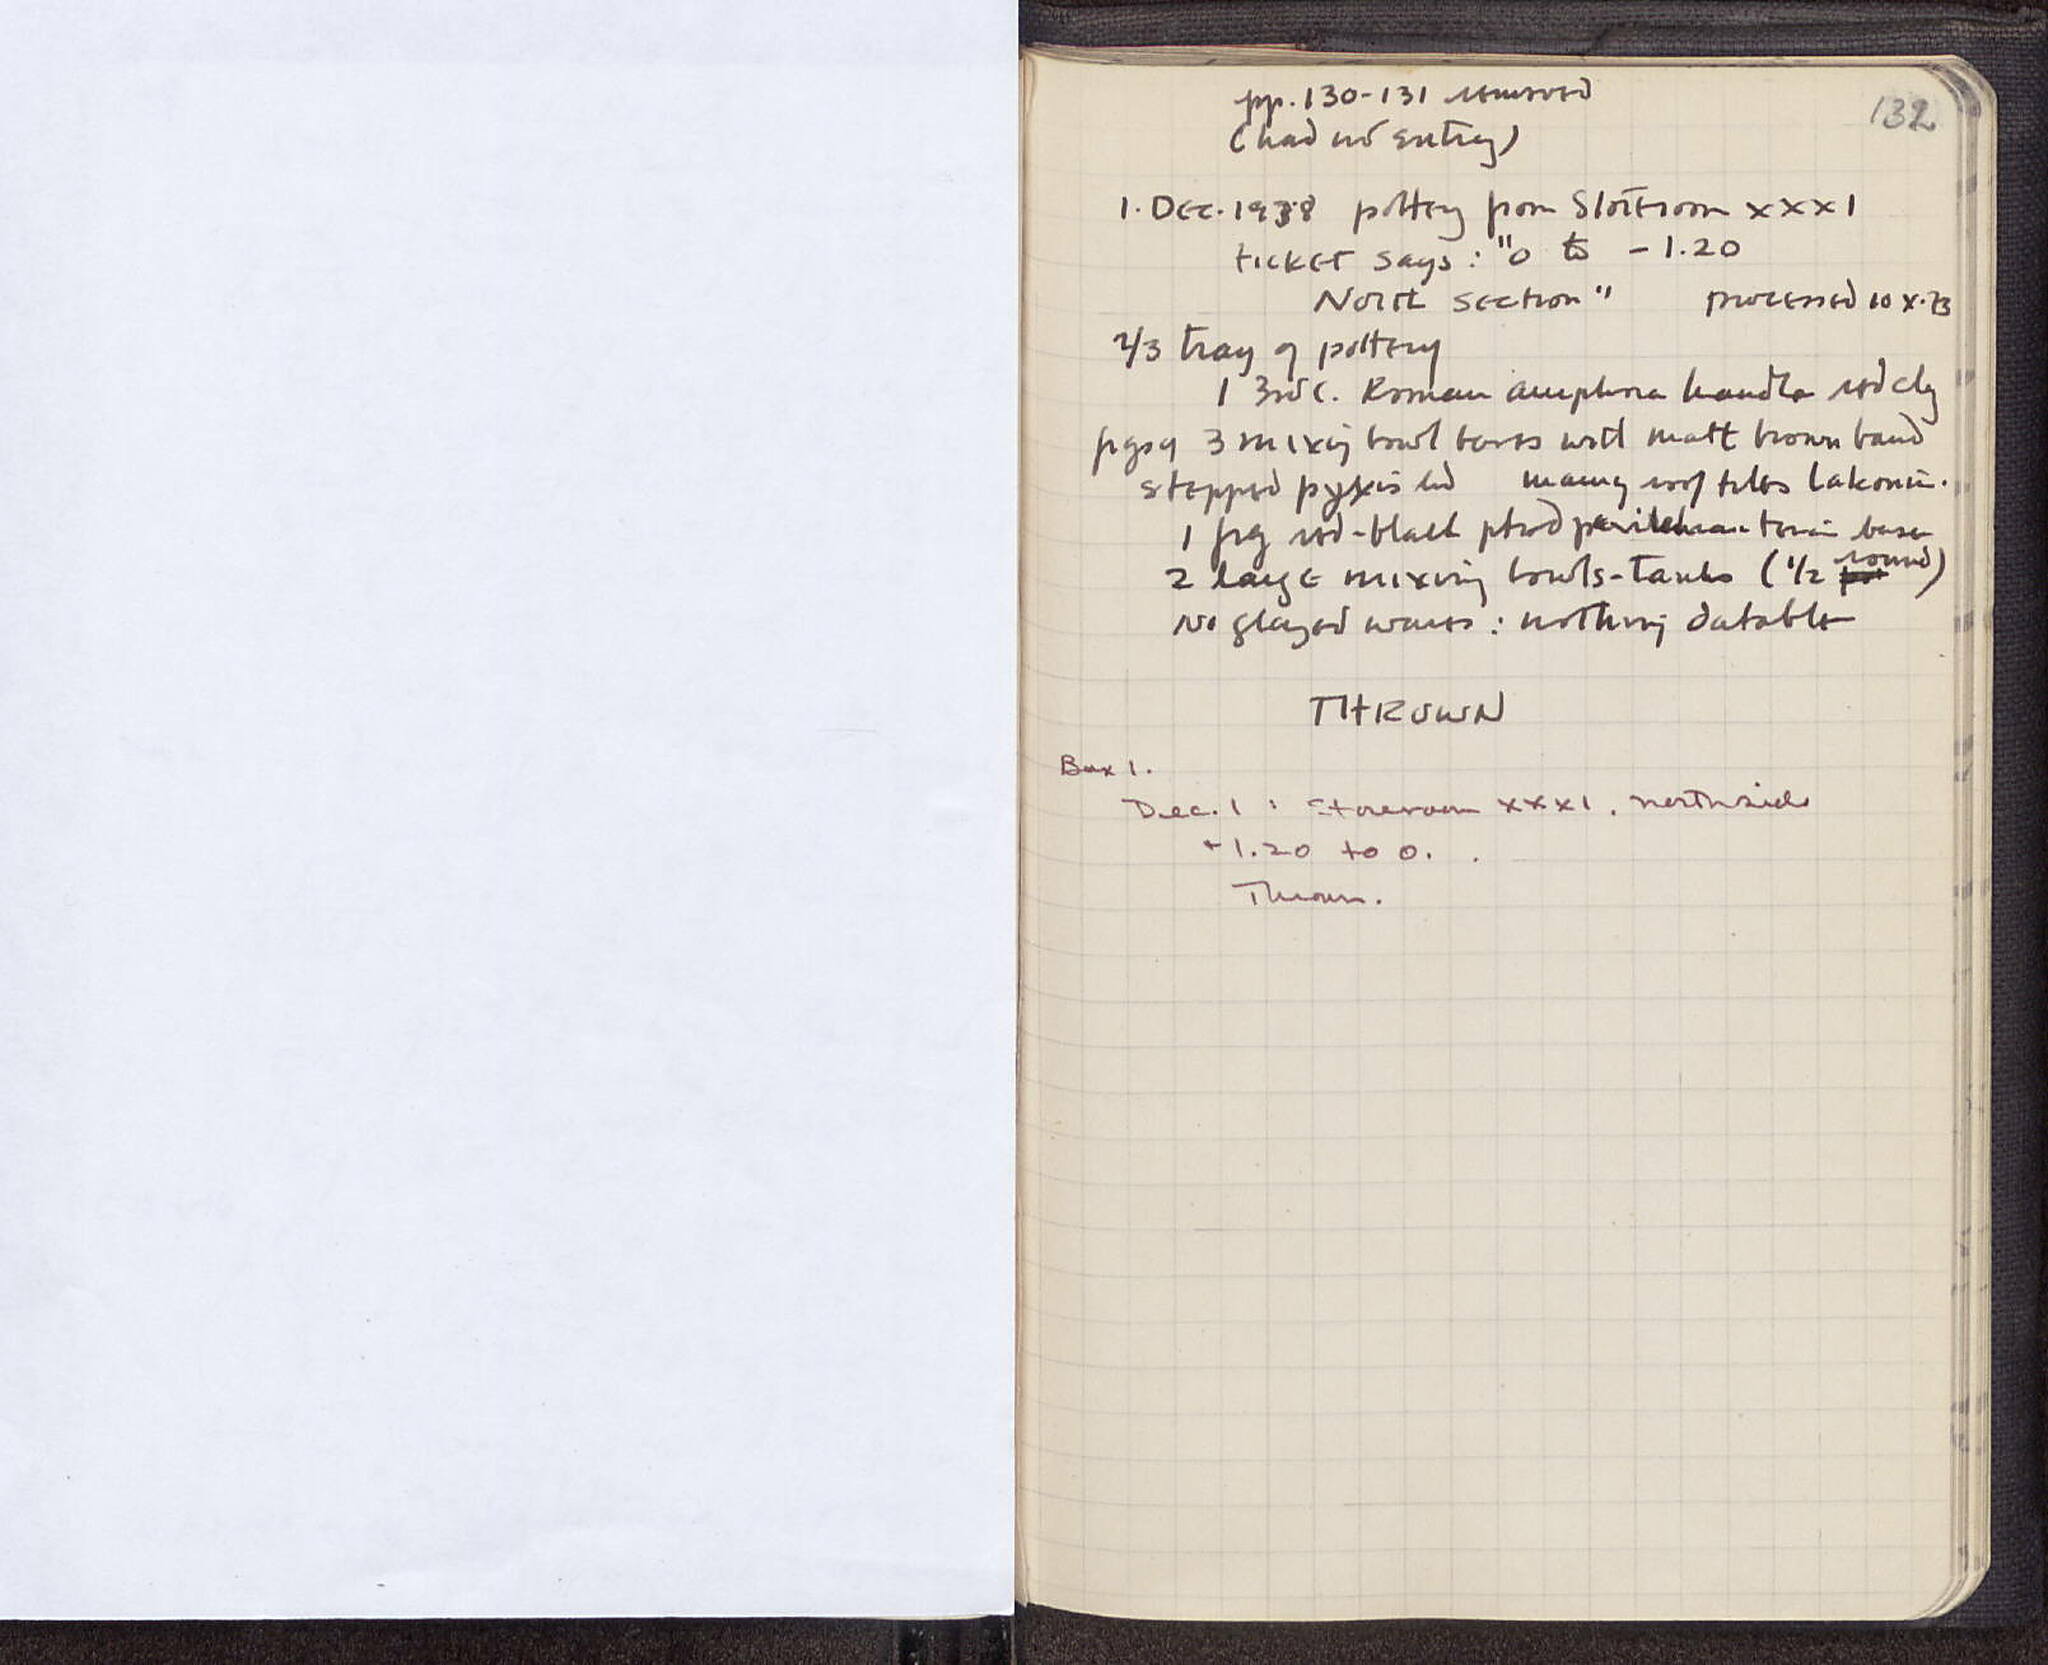 132
pp. 130-131 removed
(had no entry)
1. Dec. 1938 pottery from Storeroom XXXI
ticket says: "0 to -1.20
North section" processed 10 X.73
2/3 tray of pottery
1 3rd c. Roman amphora handle red clay
frgs of 3 mixing bowl bases with matt brown band
stepped pyxis lid many roof tiles Lakonian.
1 frg red-black ptd base
2 large mixing bowls-tanks (1/2 round)
No glazed wares: nothing datable
THROWN
Box 1.
Dec. 1: Storeroom XXXI, north side
+1.20 to 0.
Thrown.